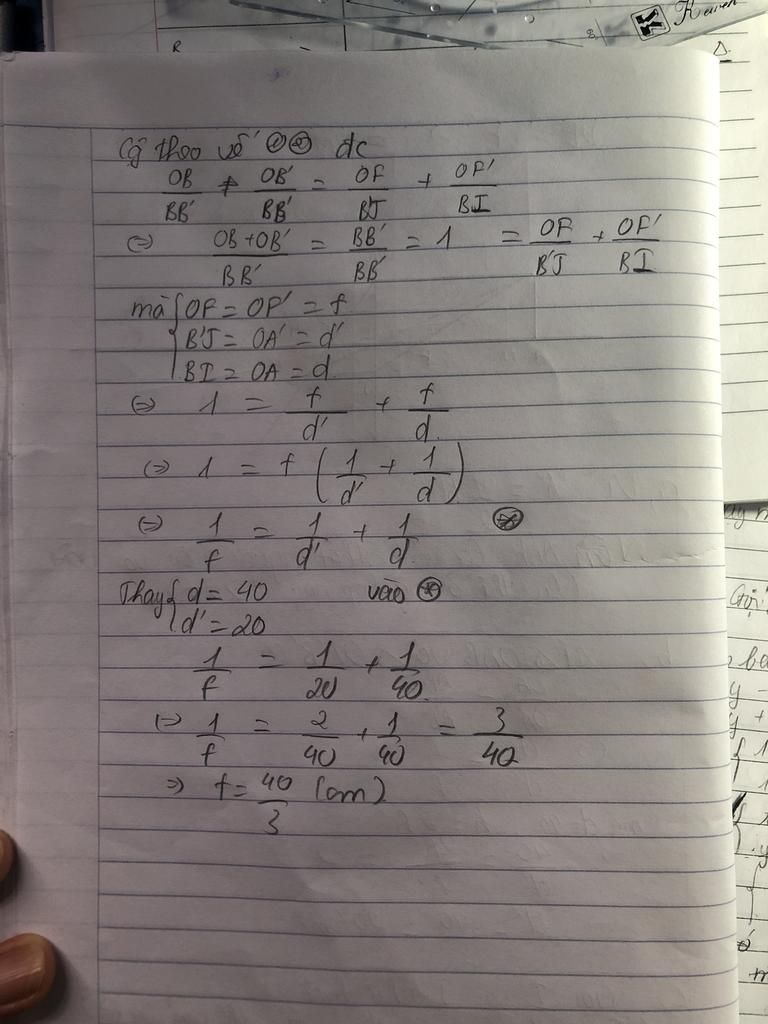 Cộng theo vế ① ② đc
OB/BB' + OB'/BB' = OF/B'J + OF'/BI
(=) (OB+OB')/BB' = BB'/BB' = 1 = OF/B'J + OF'/BI
mà { OF = OF' = f
B'J = OA' = d'
BI = OA = d
(=) 1 = f/d' + f/d
(=) 1 = f (1/d' + 1/d)
(=) 1/f = 1/d' + 1/d ⊛
Thay { d = 40 vào ⊛
d' = 20
1/f = 1/20 + 1/40
(=) 1/f = 2/40 + 1/40 = 3/40
=> f = 40/3 (cm)